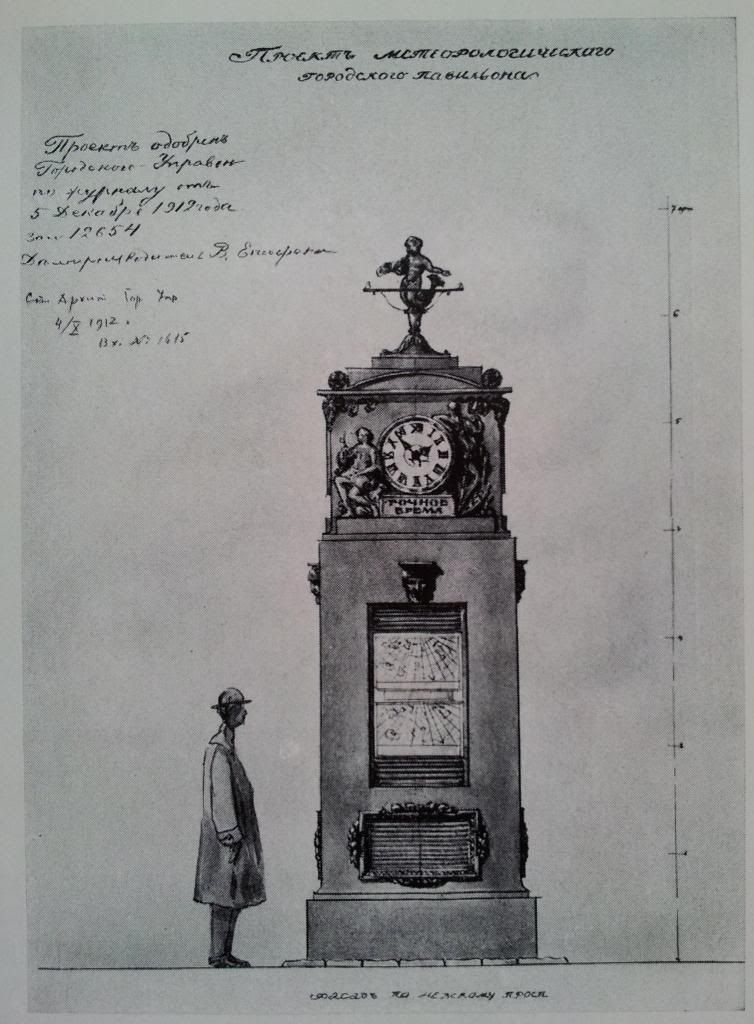 Проектъ метеорологическаго
городского павильона
Проектъ одобренъ
Городского Управ
по журналу отъ
5 Декабря 1912 года
за № 12654
В.
Арх Гор Упр
4/X 1912 г.
Вх. № 1615
7
6
5
4
3
2
1
ТОЧНОЕ
ВРЕМЯ
фасадъ по невскому просп